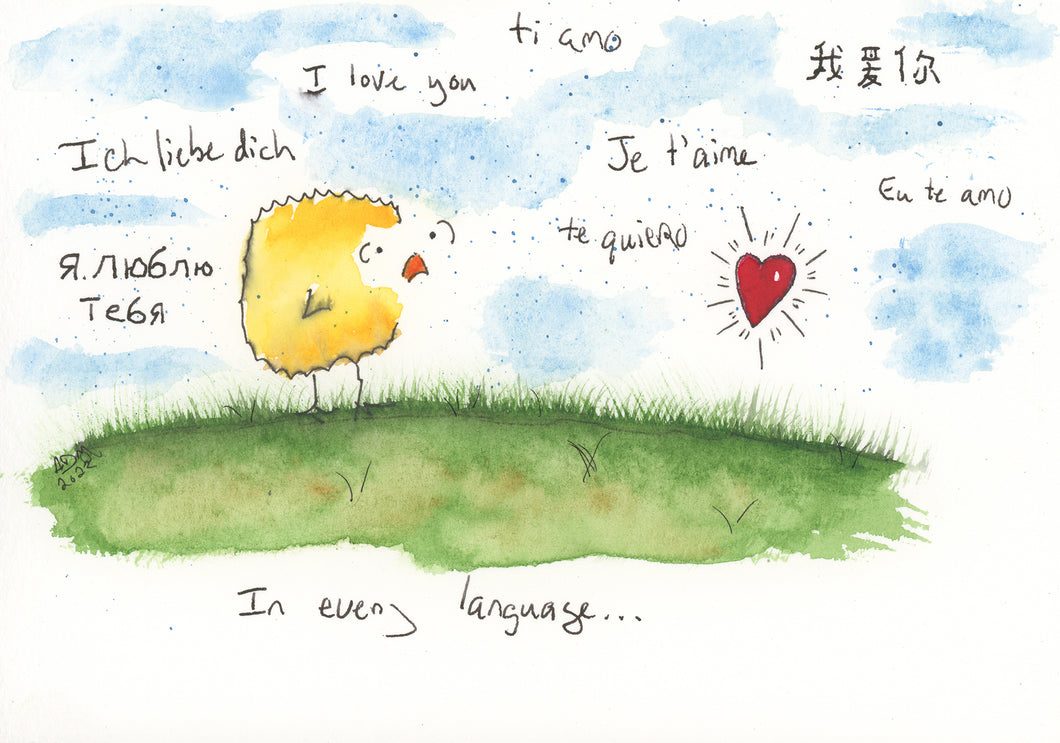 ti amo
I love you
我爱你
Ich liebe dich
Je t'aime
Eu te amo
te quiero
Я люблю
Тебя
ADM
2022
In every language...